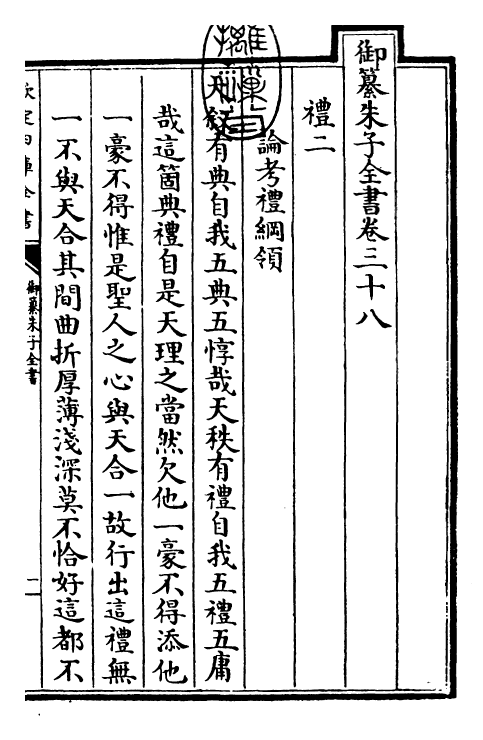 御纂朱子全書卷三十八
禮二
論考禮綱領
天敘有典自我五典五惇哉天秩有禮自我五禮五庸
哉這箇典禮自是天理之當然欠他一豪不得添他
一豪不得惟是聖人之心與天合一故行出這禮無
一不與天合其間曲折厚薄淺深莫不恰好這都不
欽定四庫全書
御纂朱子全書